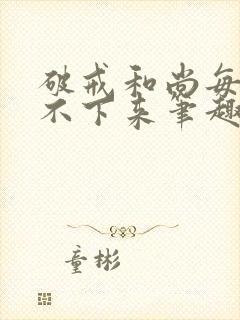 破戒和尚每
不下来笔趣
童彬